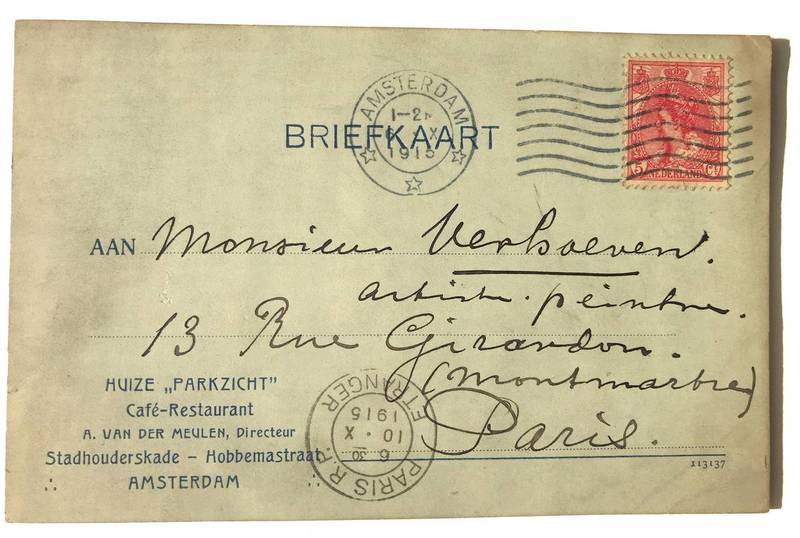 AMSTERDAM
1-2
X
1915
BRIEFKAART
5 Ct
NEDERLAND
AAN Monsieur Verhoeven.
artiste.peintre.
13 Rue Girardon.
(Montmartre)
Paris.
HUIZE „PARKZICHT"
Café-Restaurant
A. VAN DER MEULEN, Directeur
Stadhouderskade – Hobbemastraat
AMSTERDAM
PARIS R.P.
ETRANGER
6 30
10 • X
1915
113137